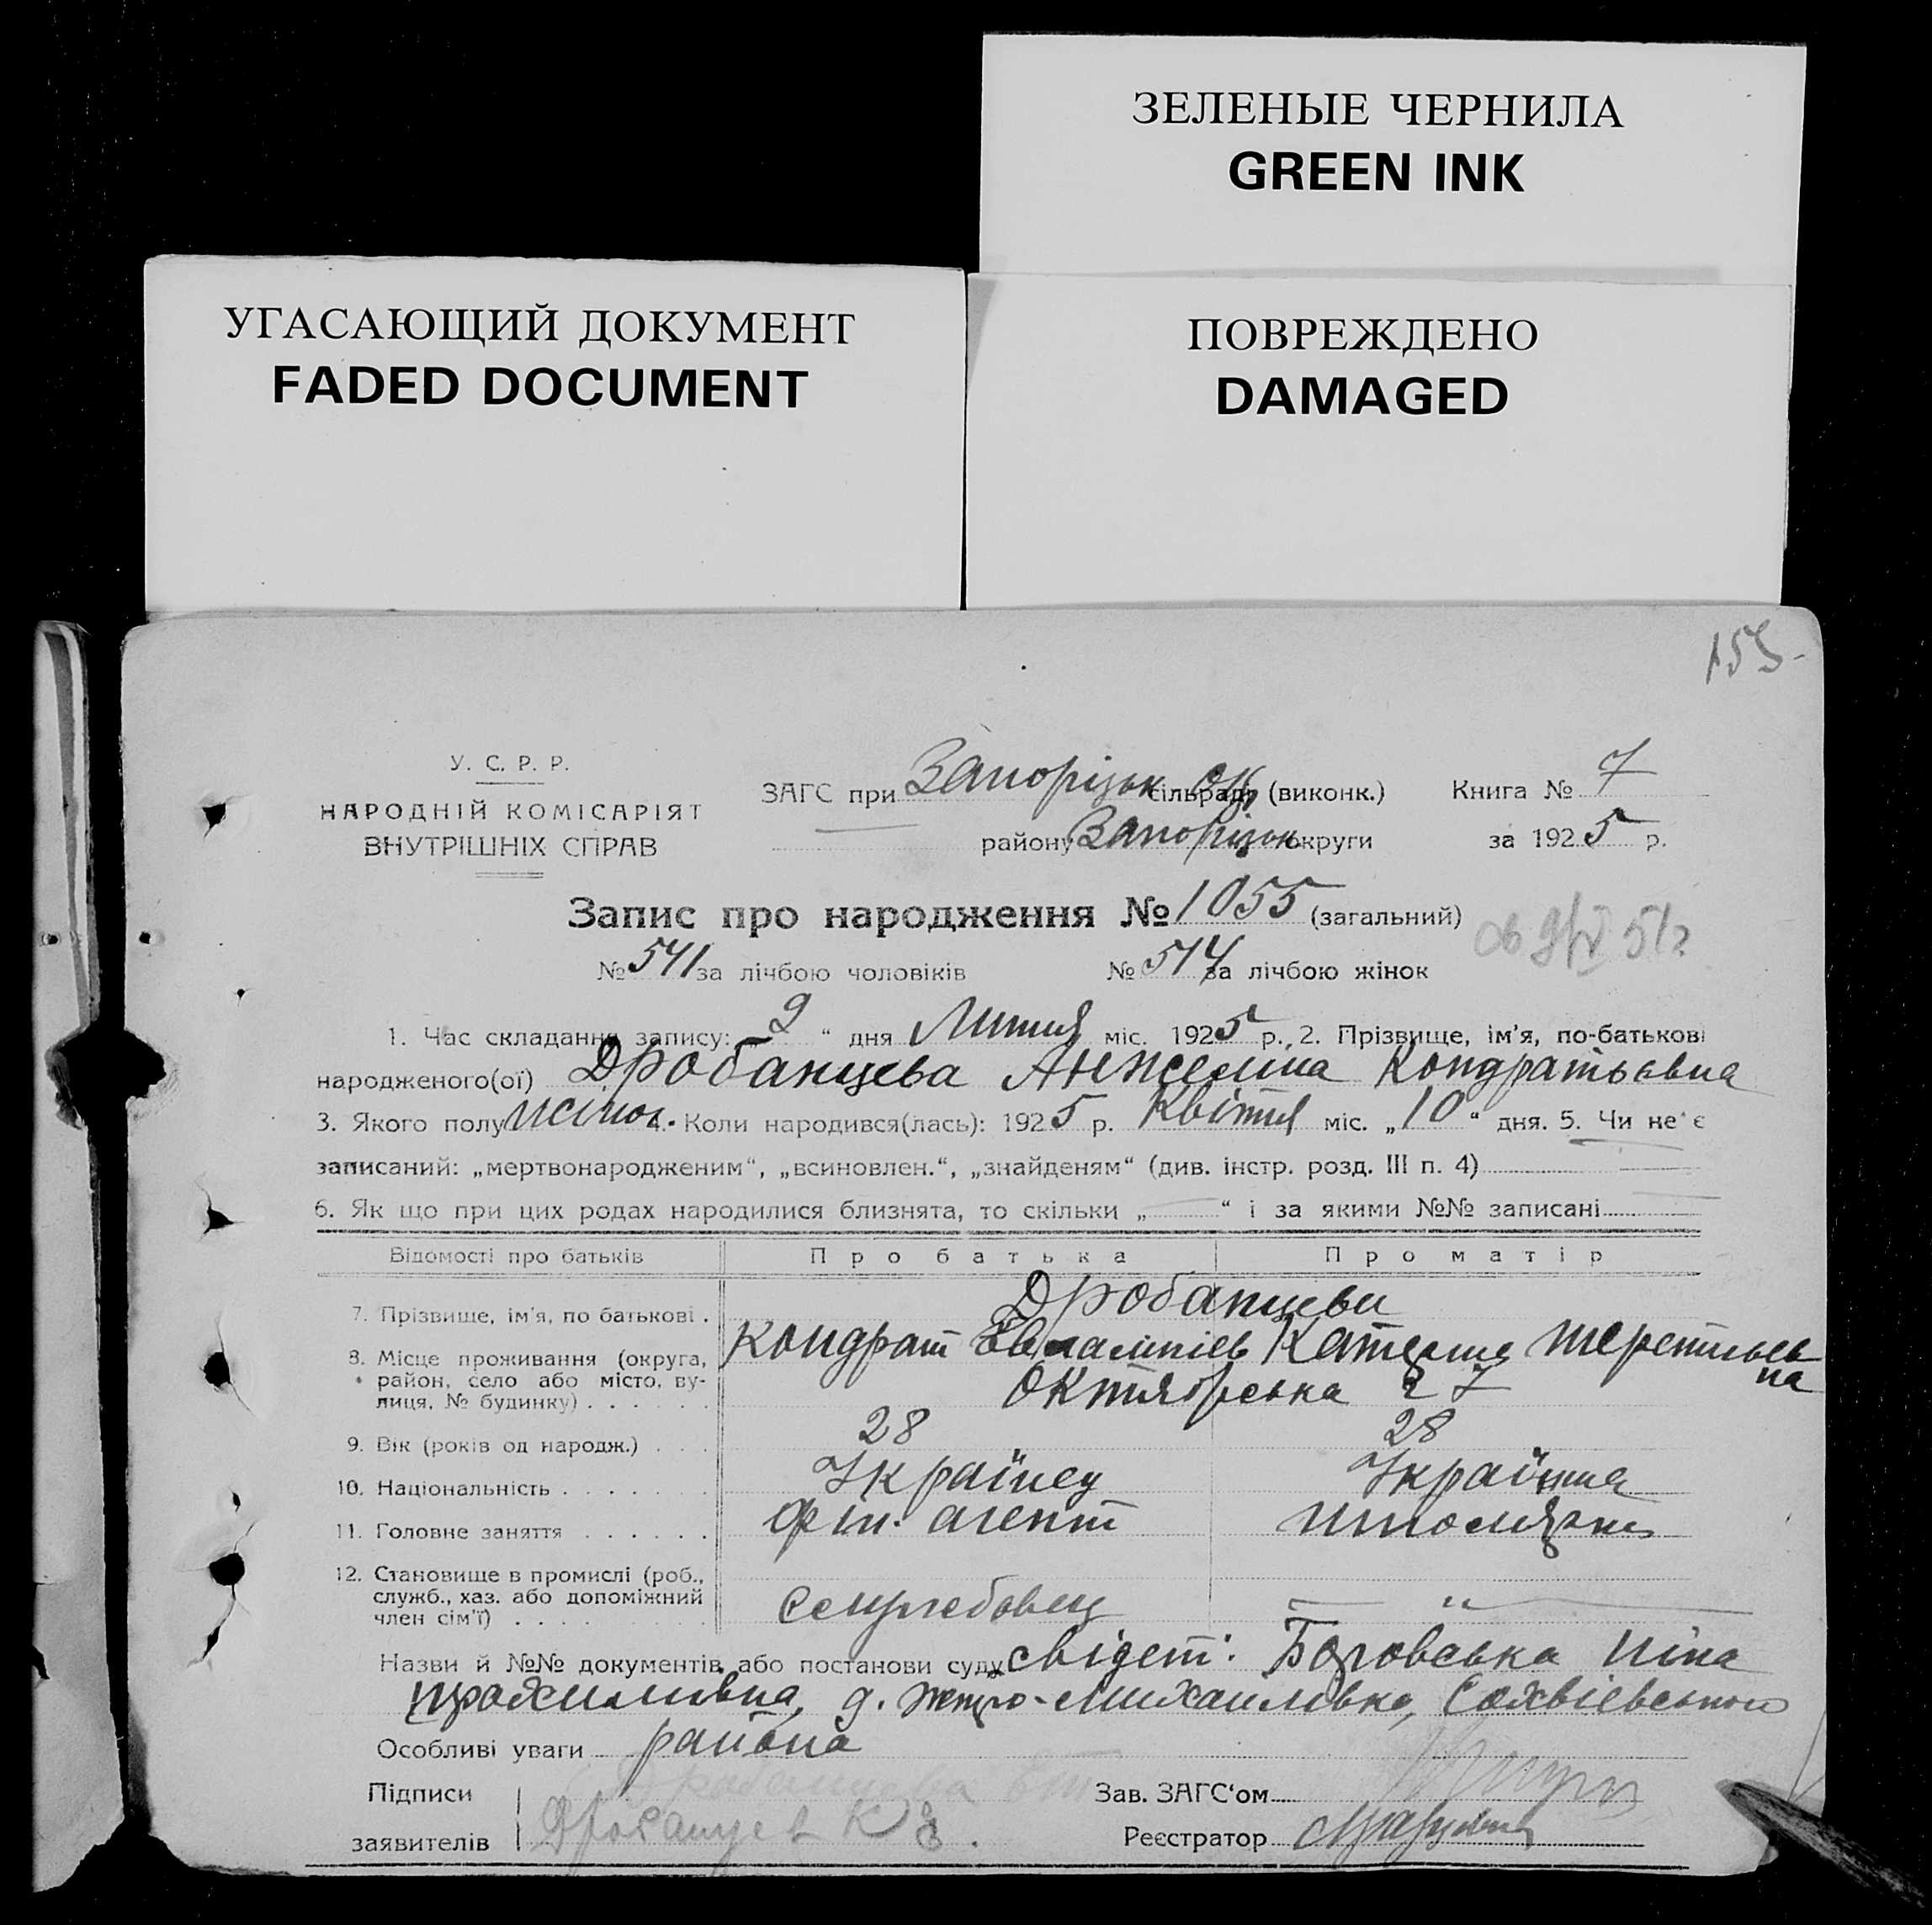 ЗЕЛЕНЫЕ ЧЕРНИЛА
GREEN INK
УГАСАЮЩИЙ ДОКУМЕНТ
FADED DOCUMENT
ПОВРЕЖДЕНО
DAMAGED
155
У. С. Р. Р.
НАРОДНІЙ КОМІСАРІЯТ
ВНУТРІШНІХ СПРАВ
ЗАГС при Запорізьк Ок. сільради (виконк.)
району Запорізьк округи
Книга № 7
за 1925 р.
Запис про народження № 1055 (загальний)
№ 541 за лічбою чоловіків № 514 за лічбою жінок
1. Час складання запису: „2“ дня Липня міс. 1925 р. 2. Прізвище, ім'я, по-батькові
народженого(ої) Дробанцева Анжеліна Кондратьєвна
3. Якого полу жіноч. 4. Коли народився(лась): 1925 р. Квітня міс. „10“ дня. 5. Чи не є
записаний: „мертвонародженим“, „всиновлен.“, „знайденям“ (див. інстр. розд. III п. 4)
6. Як що при цих родах народилися близнята, то скільки „ “ і за якими №№ записані
Відомості про батьків Про батька Про матір
7. Прізвище, ім'я, по батькові . Дробанцеви
Кондрат Евлампіев Катерина Терентьев
на
8. Місце проживання (округа,
район, село або місто, ву-
лиця, № будинку) . . . . . . Октябрська 27
9. Вік (років од народж.) . . . 28 28
10. Національність . . . . . . . Українец Українка
11. Головне заняття . . . . . . Фін. агент
12. Становище в промислі (роб.,
служб., хаз. або допоміжний
член сім'ї) . . . . Служебовец „
Назви й №№ документів або постанови суду свідет: Боровська Ніна
д. Михайлівка,
Особливі уваги района
Підписи
заявителів
Дробанцева
Дробанцев К
Зав. ЗАГС'ом
Реєстратор